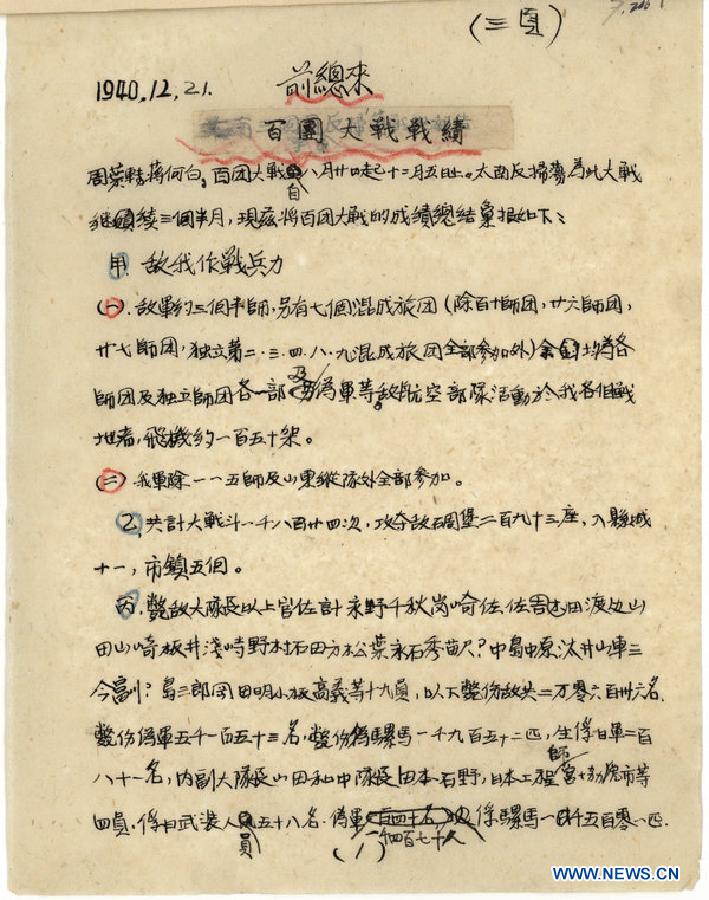 (三頁)
1940.12.21. 前總來
百團大戰戰績
百团大戰自八月廿日起十二月五日止。太南反掃蕩為此大戰
繼續三個半月，現茲將百团大戰的成績總結彙报如下：
甲. 敌我作戰兵力
(一). 敌軍約三個半師，另有七個混成旅团（除百十師团，廿六師团，
廿七師团，独立第二.三.四.八.九混成旅团全部參加外）余均為各
師团及独立師团各一部及偽軍等，敌航空部隊活動於我各個戰
地者，飛機約一百五十架。
(二). 我軍除一一五師及山東縱隊外全部參加。
乙. 共計大戰斗一千八百廿四次. 攻夺敌石碉堡二百九十三座，入縣城
十一，市鎮五個。
丙. 斃敌大隊長以上官佐計永野千秋岗崎佐
田山崎板井淺野村石田
島三郎 田明小板高義等十九員，以下斃伤敌共二万零六百卅六名.
斃伤偽軍五千一百五十三名. 斃伤 騾馬一千九百五十二匹，生俘日軍二百
八十一名，内副大隊長山田和中隊長田本石野，日本工程師 等
四員. 俘日武裝人員五十八名. 偽軍 俘騾馬一千五百零一匹.
(1)
WWW.NEWS.CN